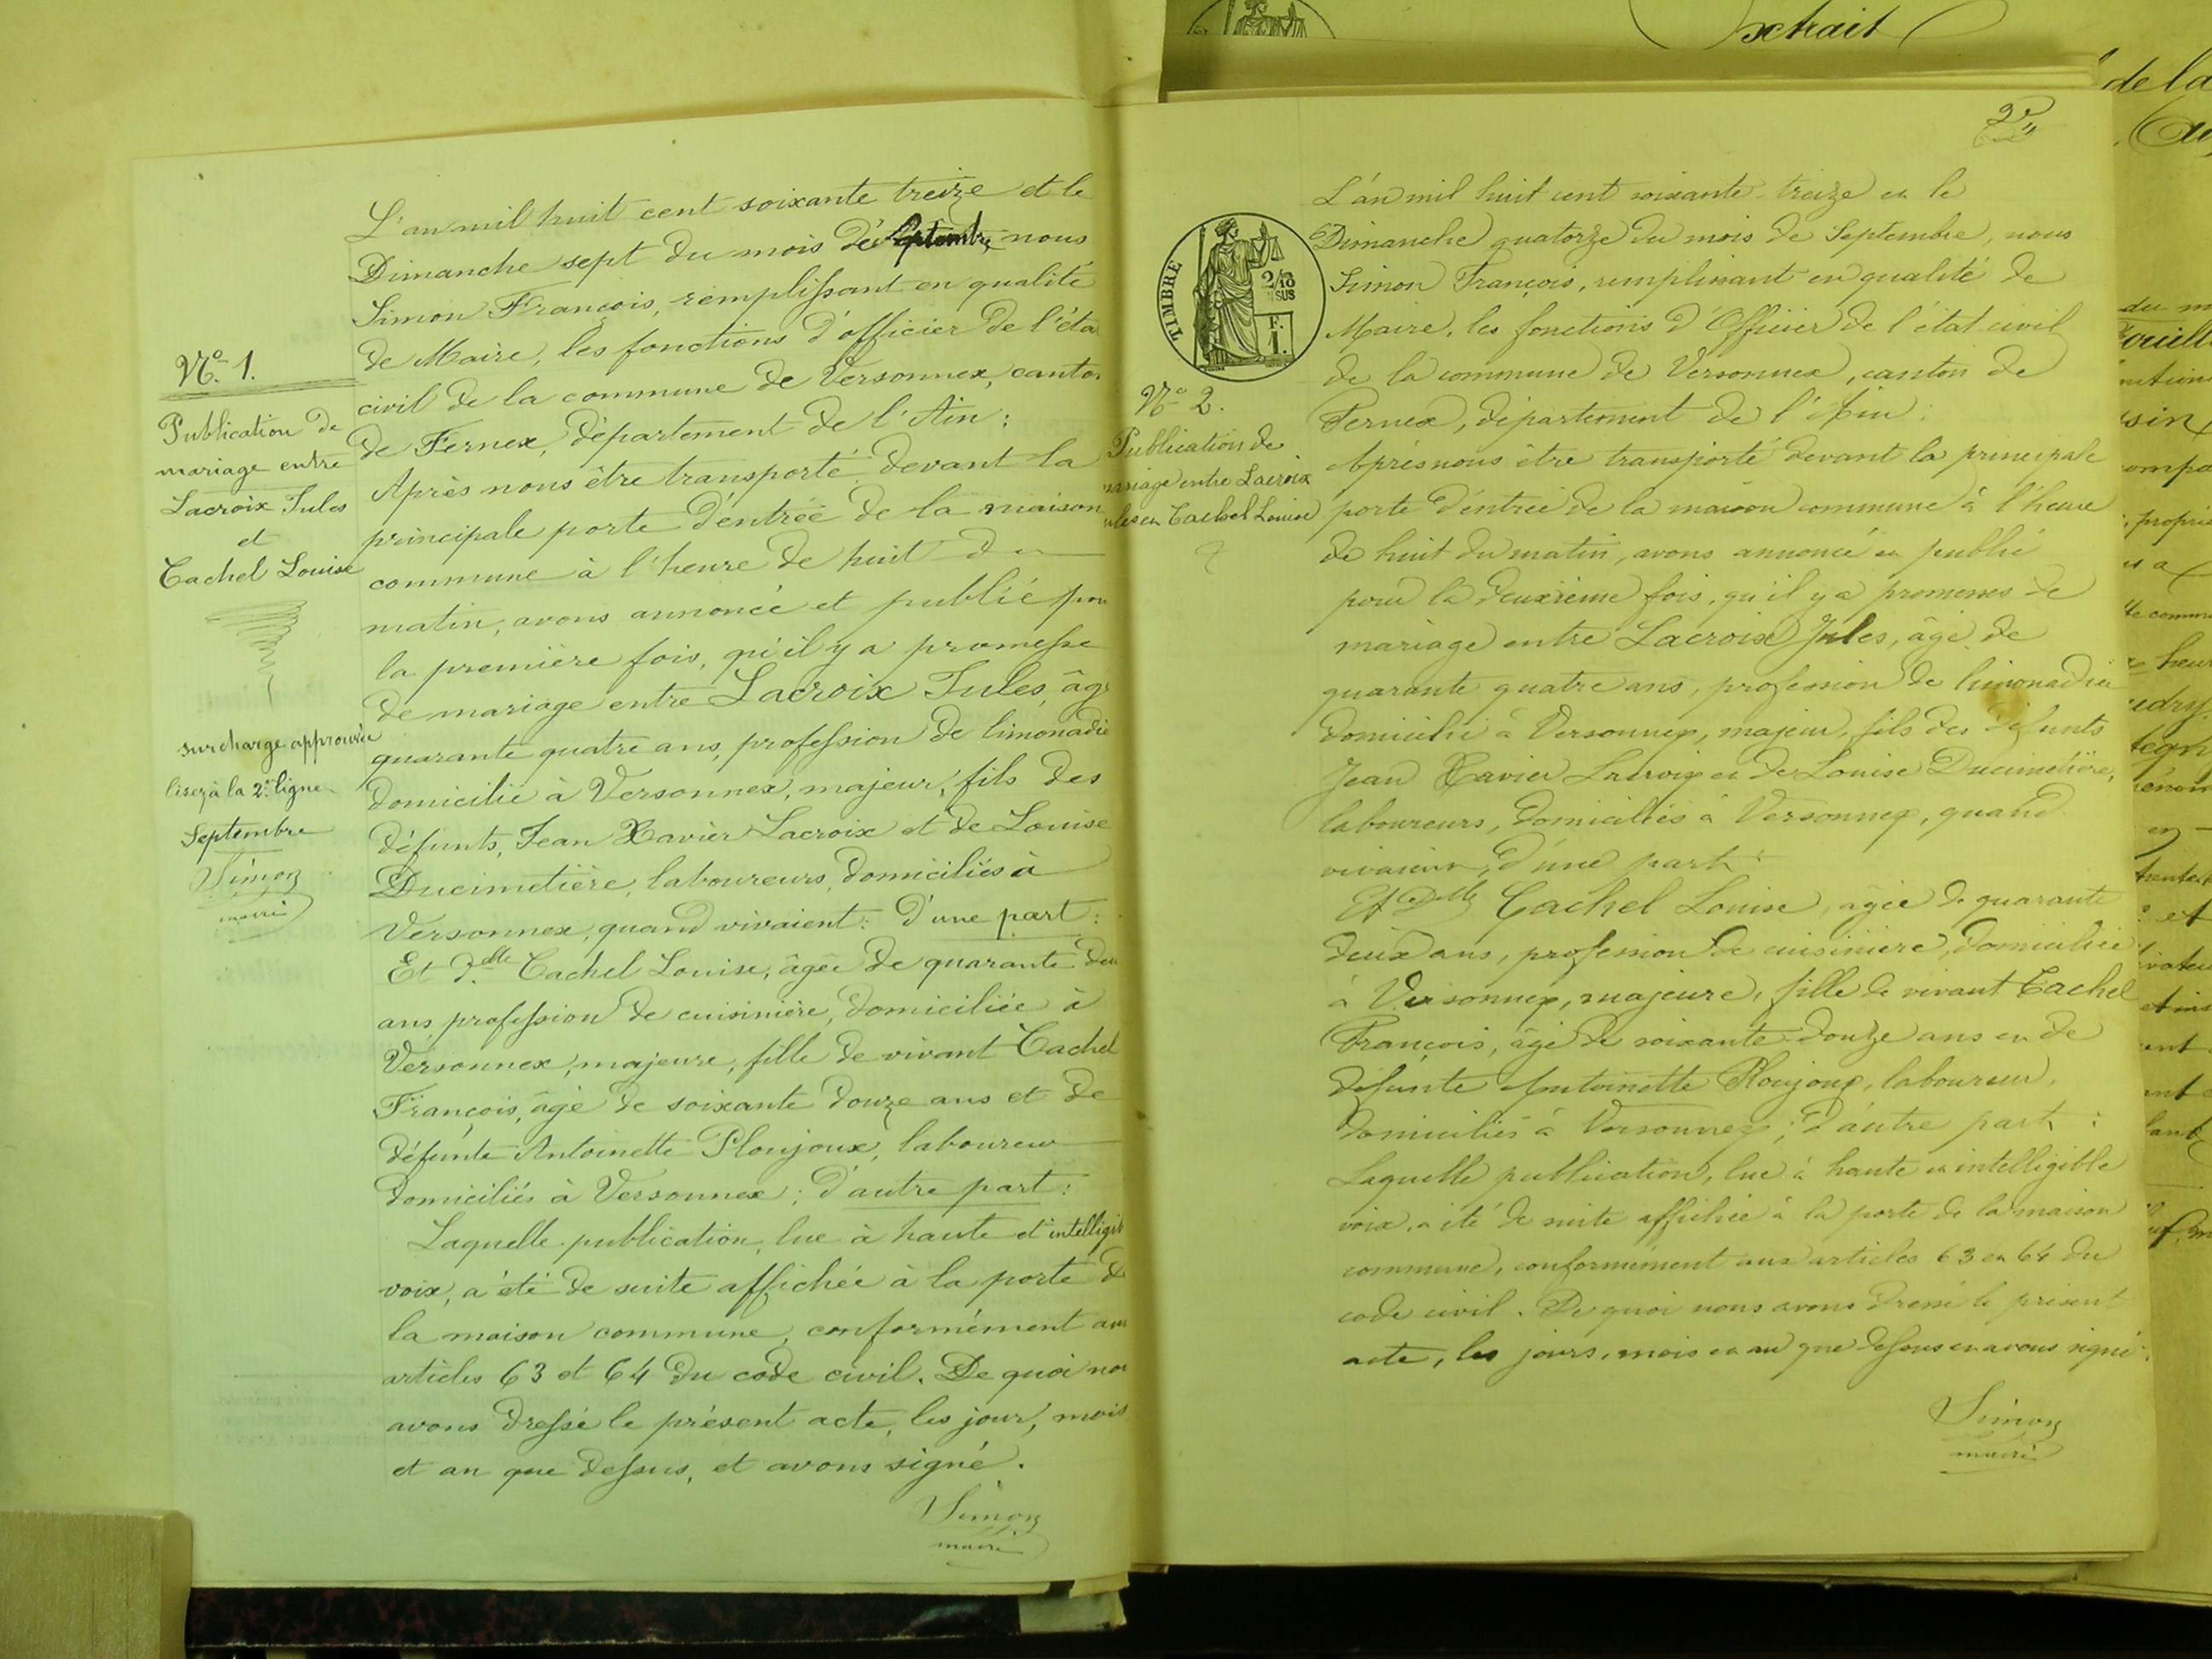 L'an mil huit cent soixante treize et le
Dimanche sept du mois de Septembre nous
Simon François, remplissant en qualité
de Maire, les fonctions d'officier de l'éta
civil de la commune de Versonnex, canto
de Fernex, département de l'Ain :
Après nous être transporté devant la
principale porte d'entrée de la maison
commune à l'heure de huit du
matin, avons annoncé et publié pou
la première fois, qu'il y a promesse
de mariage entre Lacroix Jules, âg
quarante quatre ans, profession de limonadie
domicilié à Versonnex, majeur, fils des
défunts, Jean Xavier Lacroix et de Louise
Ducimetière, laboureurs, domiciliés à
Versonnex, quand vivaient : d'une part :
Et d.elle Cachel Louise, âgée de quarante deu
ans profession de cuisinière, domiciliée à
Versonnex, majeure, fille de vivant Cachel
François, âgé de soixante douze ans et de
défunte Antoinette Ploujoux, laboureur
domiciliés à Versonnex ; d'autre part :
Laquelle publication, lue à haute et intelligib
voix, a été de suite affichée à la porte d
la maison commune, conformément aux
articles 63 et 64 du code civil. De quoi nou
avons dressé le présent acte, les jour, mois
et an que dessus, et avons signé.
Simon
maire
N.° 1.
Publication de
mariage entre
Lacroix Jules
et
Cachel Louise
surcharge approuvée
lisez à la 2e ligne
Septembre
Simon
maire
2e
TIMBRE
2/10
SUS
F.
1.
N.° 2.
Publication de
mariage entre Lacroix
ules et Cachel Louise
L'an mil huit cent soixante-treize et le
Dimanche quatorze du mois de Septembre, nous
Simon François, remplissant en qualité de
Maire, les fonctions d'Officier de l'état civil
de la commune de Versonnex, canton de
Fernex, département de l'Ain :
Après nous être transporté devant la principale
porte d'entrée de la maison commune à l'heure
de huit du matin, avons annoncé et publié
pour la deuxième fois, qu'il y a promesses de
mariage entre Lacroix Jules, âgé de
quarante quatre ans, profession de limonadier
domicilié à Versonnex, majeur, fils des défunts
Jean Xavier Lacroix et de Louise Ducimetière,
laboureurs, domiciliés à Versonnex, quand
vivaient, d'une part :
Et Dlle Cachel Louise, âgée de quarante
deux ans, profession de cuisinière, domiciliée
à Versonnex, majeure, fille de vivant Cachel
François, âgé de soixante-douze ans et de
défunte Antoinette Ploujoux, laboureur,
domiciliés à Versonnex ; d'autre part :
Laquelle publication, lue à haute et intelligible
voix, a été de suite affichée à la porte de la maison
commune, conformément aux articles 63 et 64 du
code civil. De quoi nous avons dressé le présent
acte, les jours, mois et an que dessus et avons signé.
Simon
maire
Extrait
de la